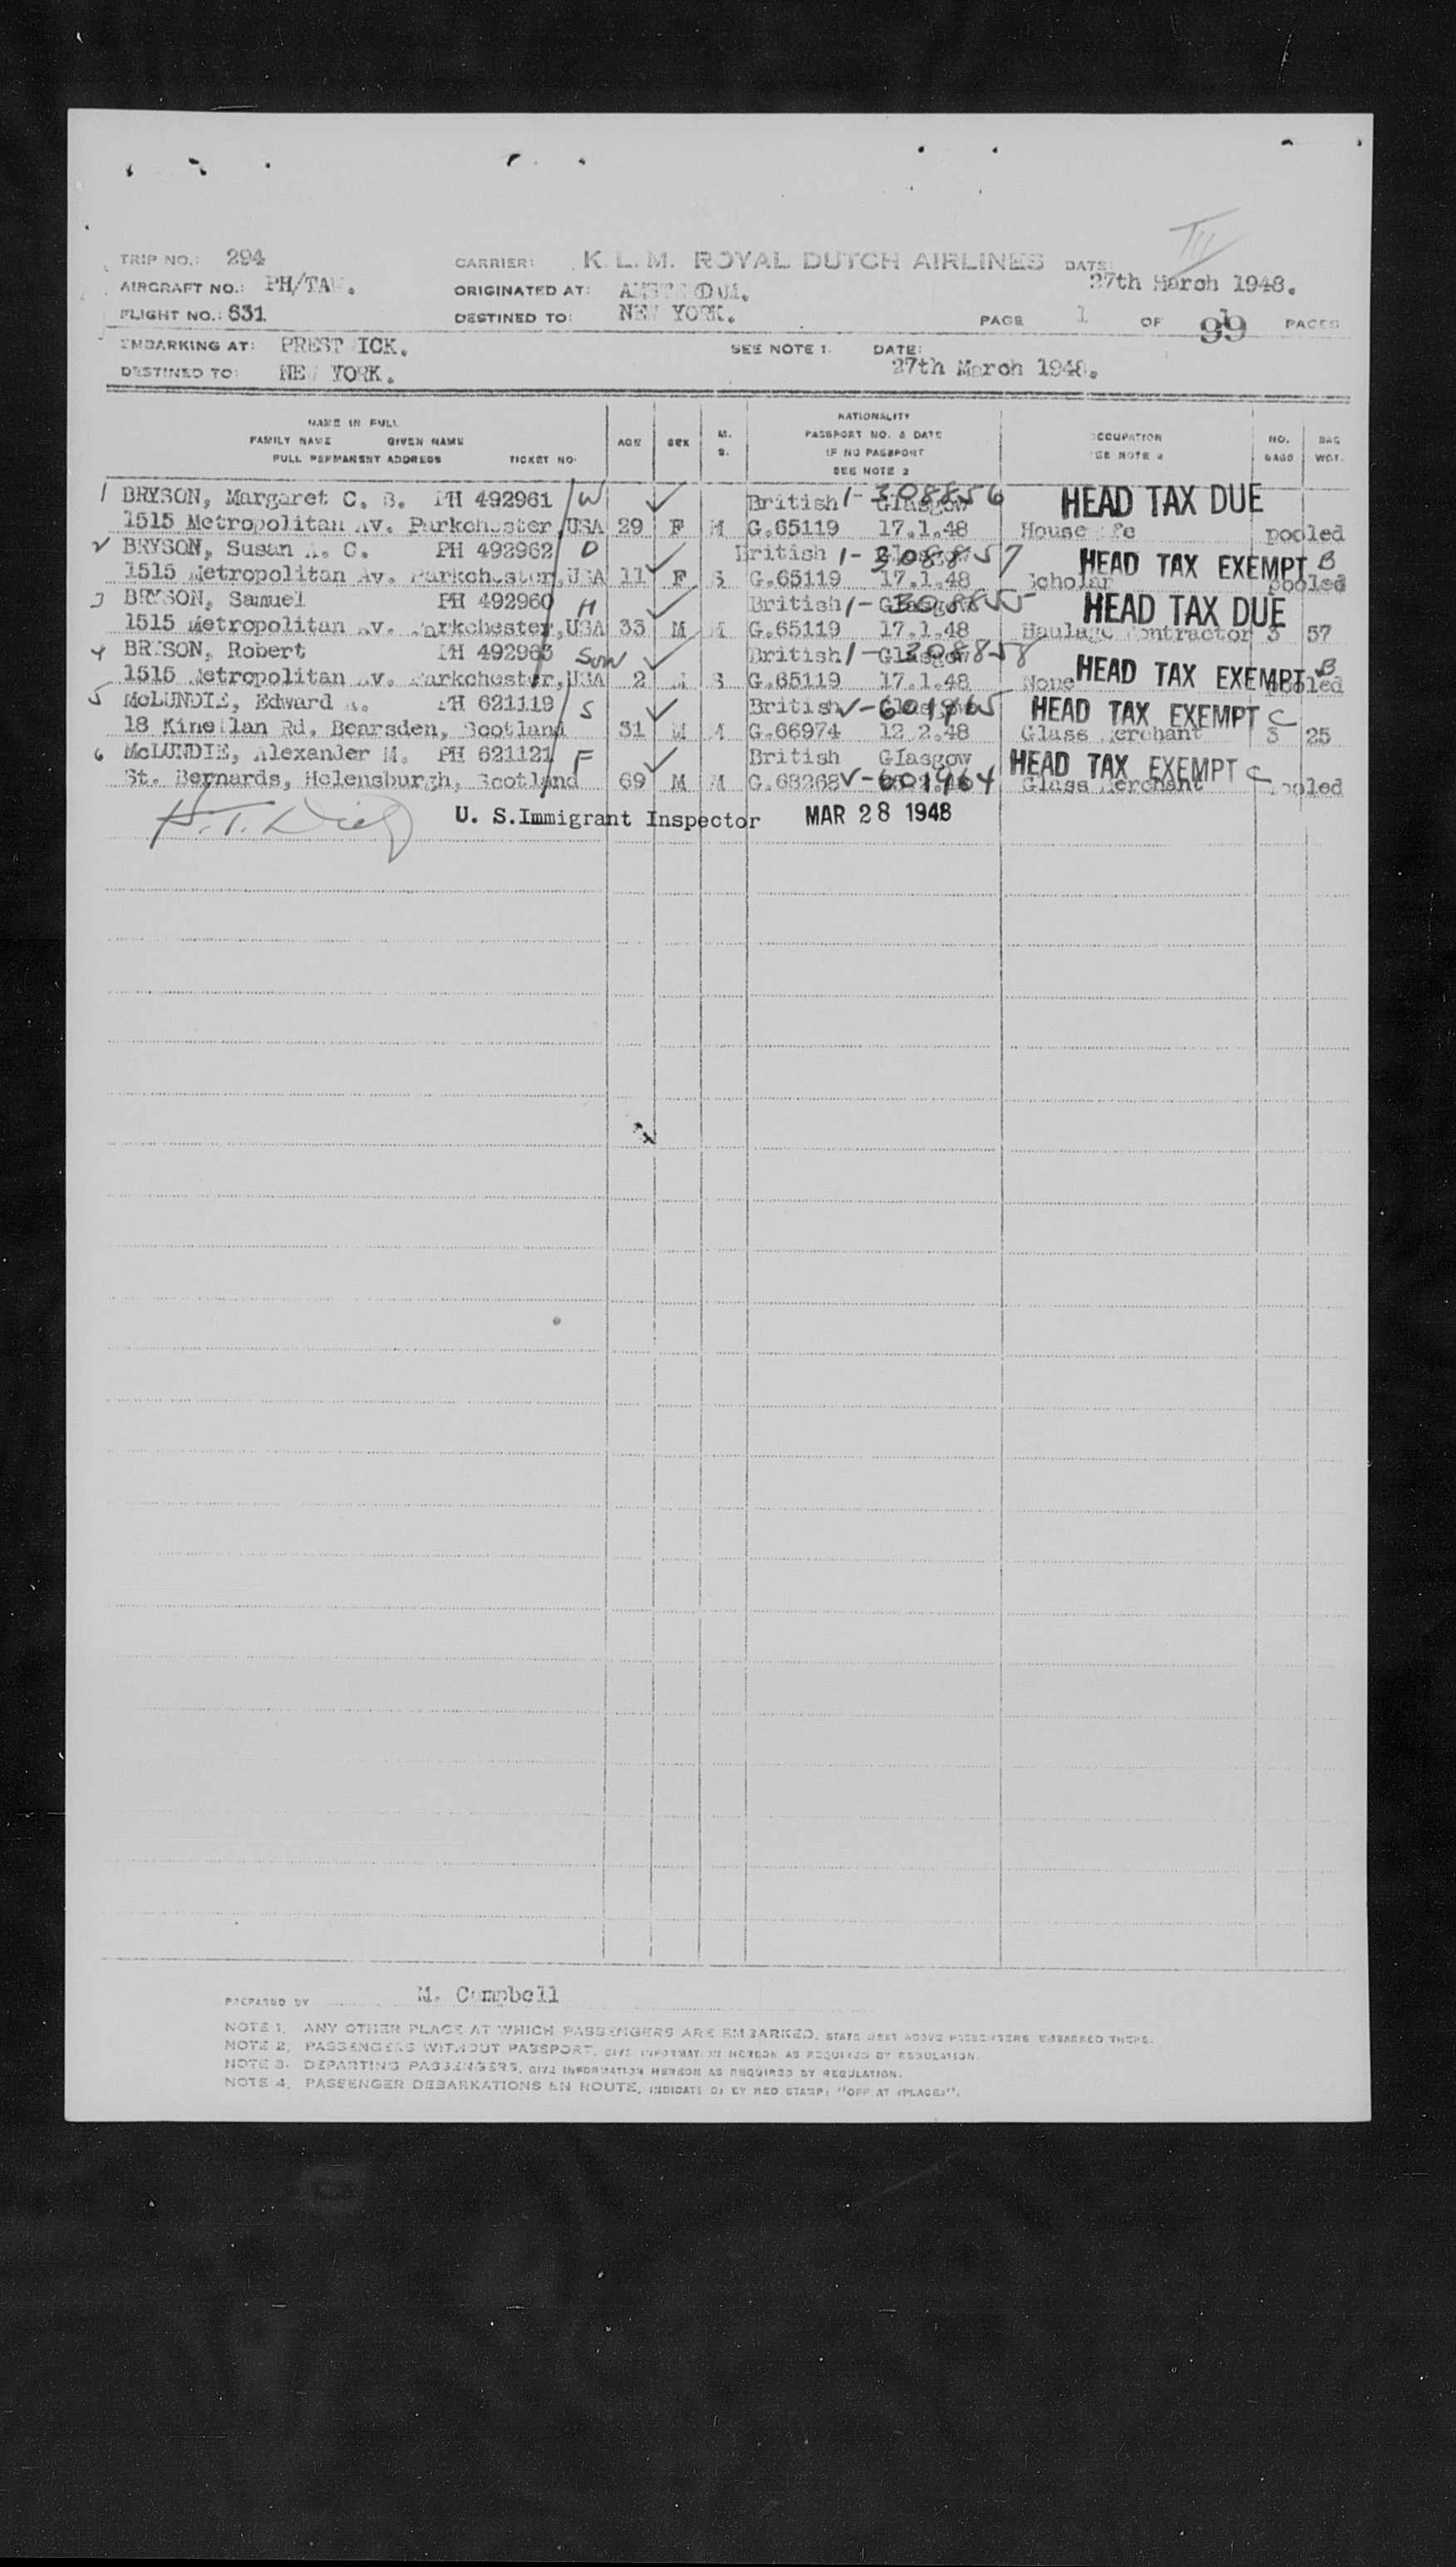 TRIP NO.: 294 CARRIER: K.L.M. ROYAL DUTCH AIRLINES DATE:
AIRCRAFT NO.: PH/TA . ORIGINATED AT: 27th March 1948.
FLIGHT NO.: 631 DESTINED TO: NEW YORK. PAGE 1 OF PAGES
EMBARKING AT: PRESTWICK. SEE NOTE 1. DATE:
DESTINED TO: NEW YORK. 27th March 1948.
NAME IN FULL NATIONALITY
FAMILY NAME GIVEN NAME AGE SEX M. PASSPORT NO. & DATE OCCUPATION NO. BAG
FULL PERMANENT ADDRESS TICKET NO. S. IF NO PASSPORT SEE NOTE BAGS WGT.
SEE NOTE 2
1 BRYSON, Margaret C. B. PH 492961 W British 1-308856 Glasgow HEAD TAX DUE
1515 Metropolitan Av. Parkchester USA 29 F M G.65119 17.1.48 Housewife pooled
2 BRYSON, Susan A. C. PH 492962 D British 1-308857 HEAD TAX EXEMPT B
1515 Metropolitan Av. Parkchester, USA 11 F S G.65119 17.1.48 Scholar pooled
3 BRYSON, Samuel PH 492960 H British 1-308855 Glasgow HEAD TAX DUE
1515 Metropolitan Av. Parkchester, USA 33 M M G.65119 17.1.48 Haulage Contractor 3 57
4 BRYSON, Robert PH 492963 Son British 1-308858 Glasgow
1515 Metropolitan Av. Parkchester, USA 2 M S G.65119 17.1.48 None HEAD TAX EXEMPT B pooled
5 McLUNDIE, Edward A. PH 621119 S British V-601965 HEAD TAX EXEMPT C
18 Kinellan Rd, Bearsden, Scotland 31 M M G.66974 12.2.48 Glass Merchant 3 25
6 McLUNDIE, Alexander M. PH 621121 F British Glasgow HEAD TAX EXEMPT C
St. Bernards, Helensburgh, Scotland 69 M M G.68268 V-601964 Glass Merchant pooled
U. S. Immigrant Inspector MAR 28 1948
PREPARED BY M. Campbell
NOTE 1. ANY OTHER PLACE AT WHICH PASSENGERS ARE EMBARKED, STATE NEXT ABOVE PASSENGERS EMBARKED THERE.
NOTE 2. PASSENGERS WITHOUT PASSPORT, GIVE INFORMATION HEREON AS REQUIRED BY REGULATION.
NOTE 3. DEPARTING PASSENGERS, GIVE INFORMATION HEREON AS REQUIRED BY REGULATION.
NOTE 4. PASSENGER DEBARKATIONS EN ROUTE, INDICATED BY RED STAMP: "OFF AT (PLACE)".